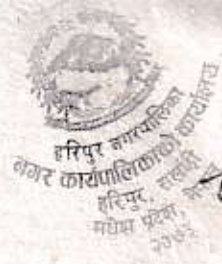 हरिपुर नगरपालिका
नगर कार्यपालिकाको कार्यालय
हरिपुर, सर्लाही
मधेश प्रदेश,
२०७३